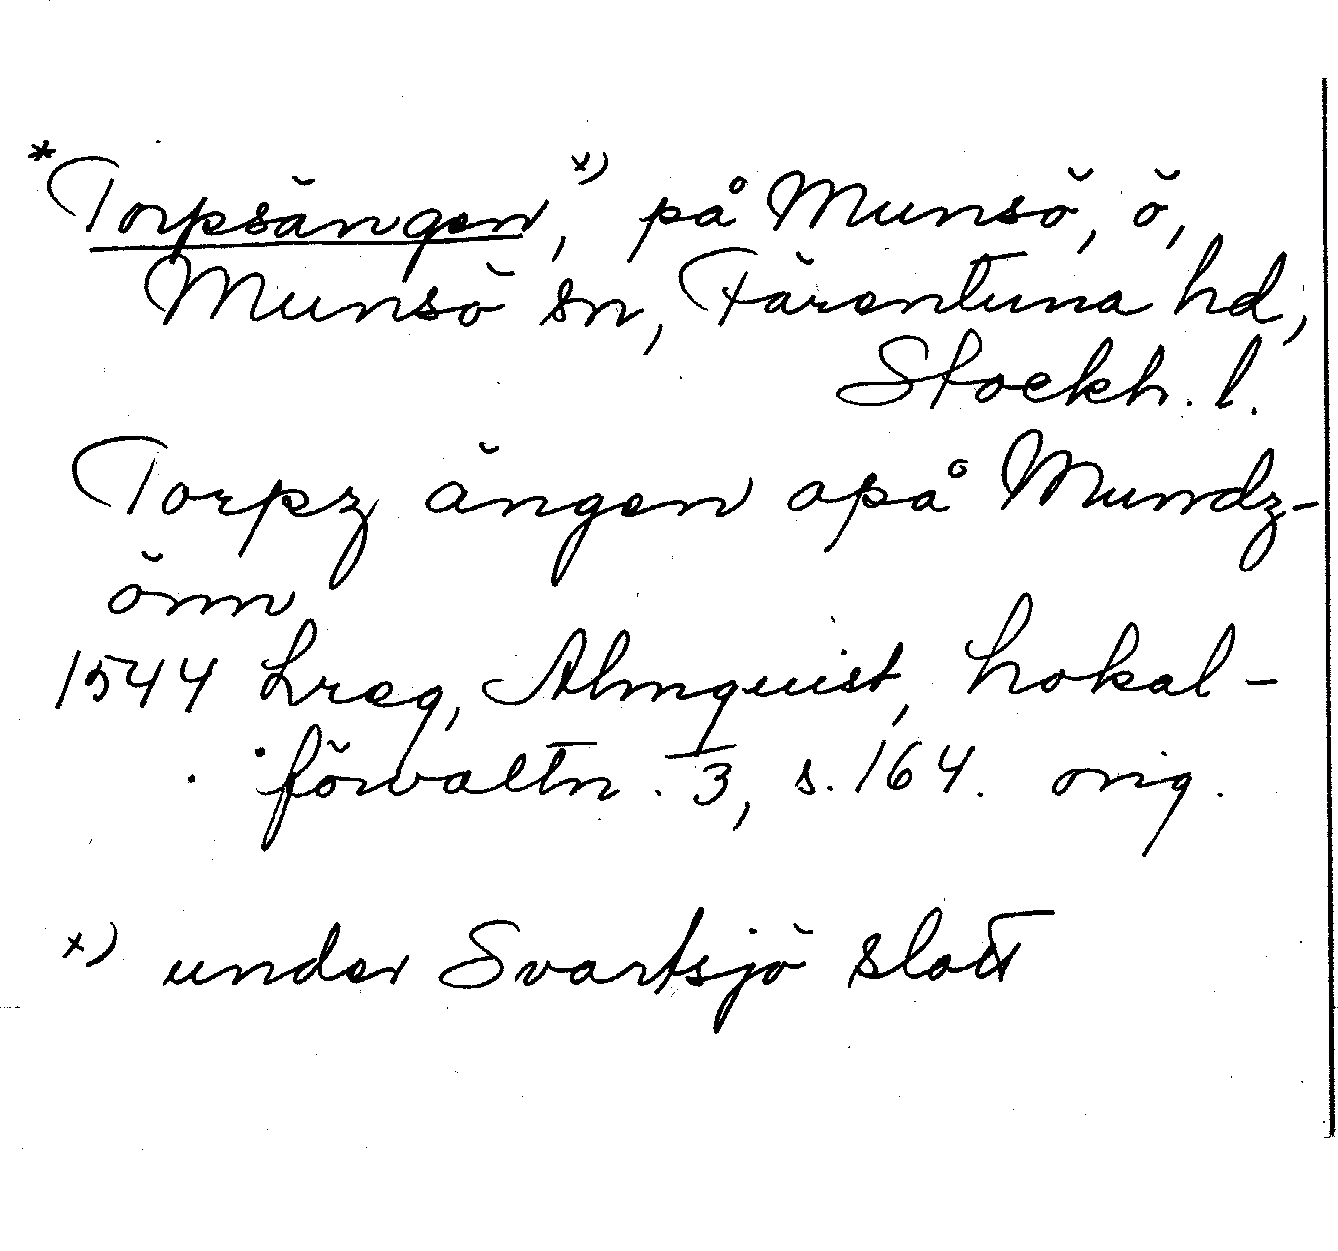 *Torpsängen,ˣ⁾ på Munsö, ö,
Munsö sn, Färentuna hd,
Stockh. l.
Torpz ängen opå Mundz-
önn
1544 Lreg, Almquist, Lokal-
förvaltn. 3, s. 164. orig.
ˣ⁾ under Svartsjö slott